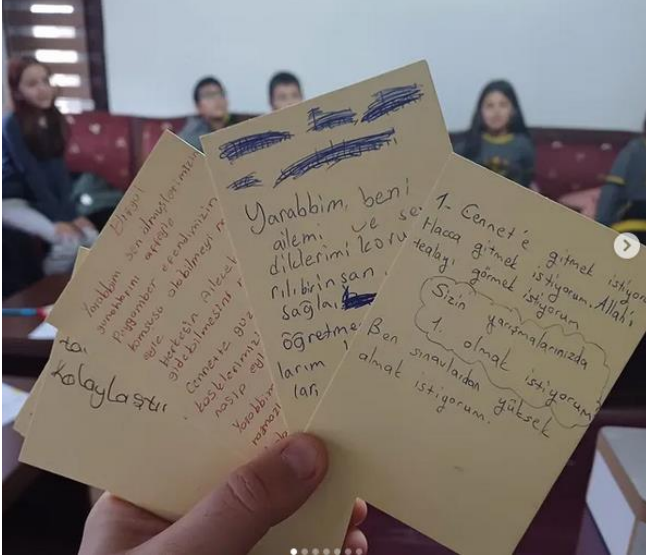 Elifgül
Yarabbim sen ölmüşlerimizin
günahlarını affeyle
Peygamber efendimizin
komşusu olabilmeyi n
eyle
herkesin Ailecek
gidebilmesini
Cennette güz
köşklerimiz
nasip eyl
Yarabbim
kolaylaştır
Yarabbim, beni
ailemi ve se
diklerimi koru
rılı bir insan
sağla
öğretme
larım
ları
1- Cennet'e gitmek istiyoru
Hacca gitmek istiyorum. Allah'ı
görmek istiyorum
Sizin yarışmalarınızda
1. olmak istiyorum
Ben sınavlardan yüksek
almak istiyorum.